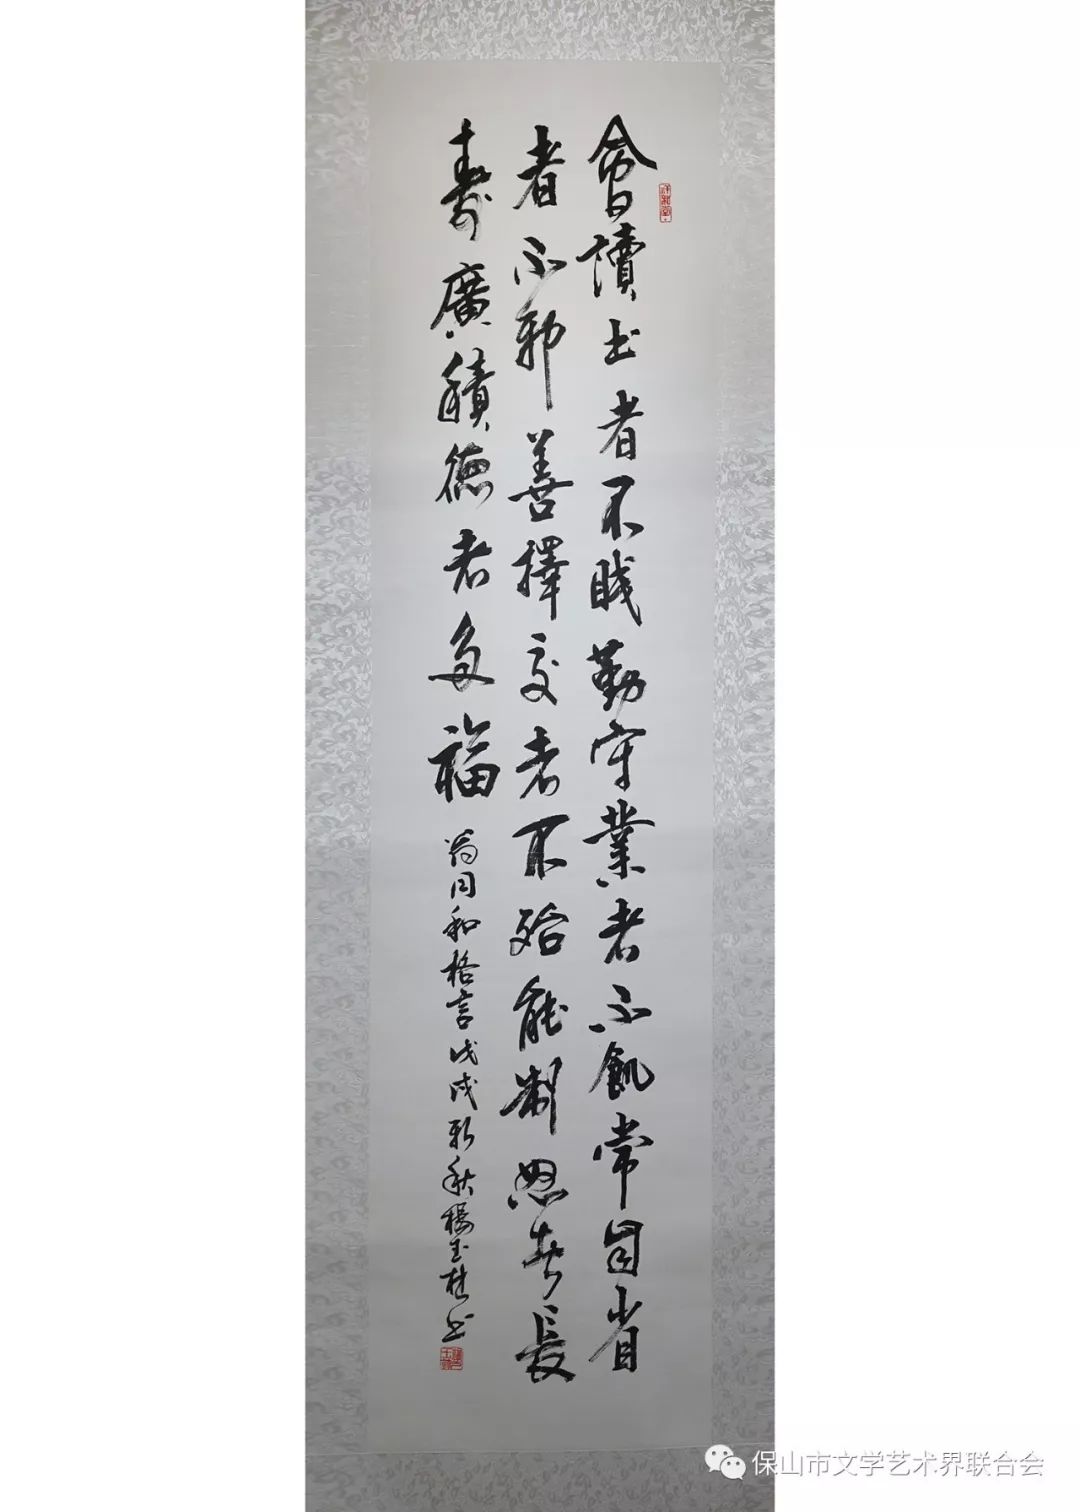 會讀书者不賤勤守業者不飢常自省
者不邪善擇交者不殆能制怒者長
壽廣積德者多福
翁同和格言戊戌新秋楊玉桂书
保山市文学艺术界联合会